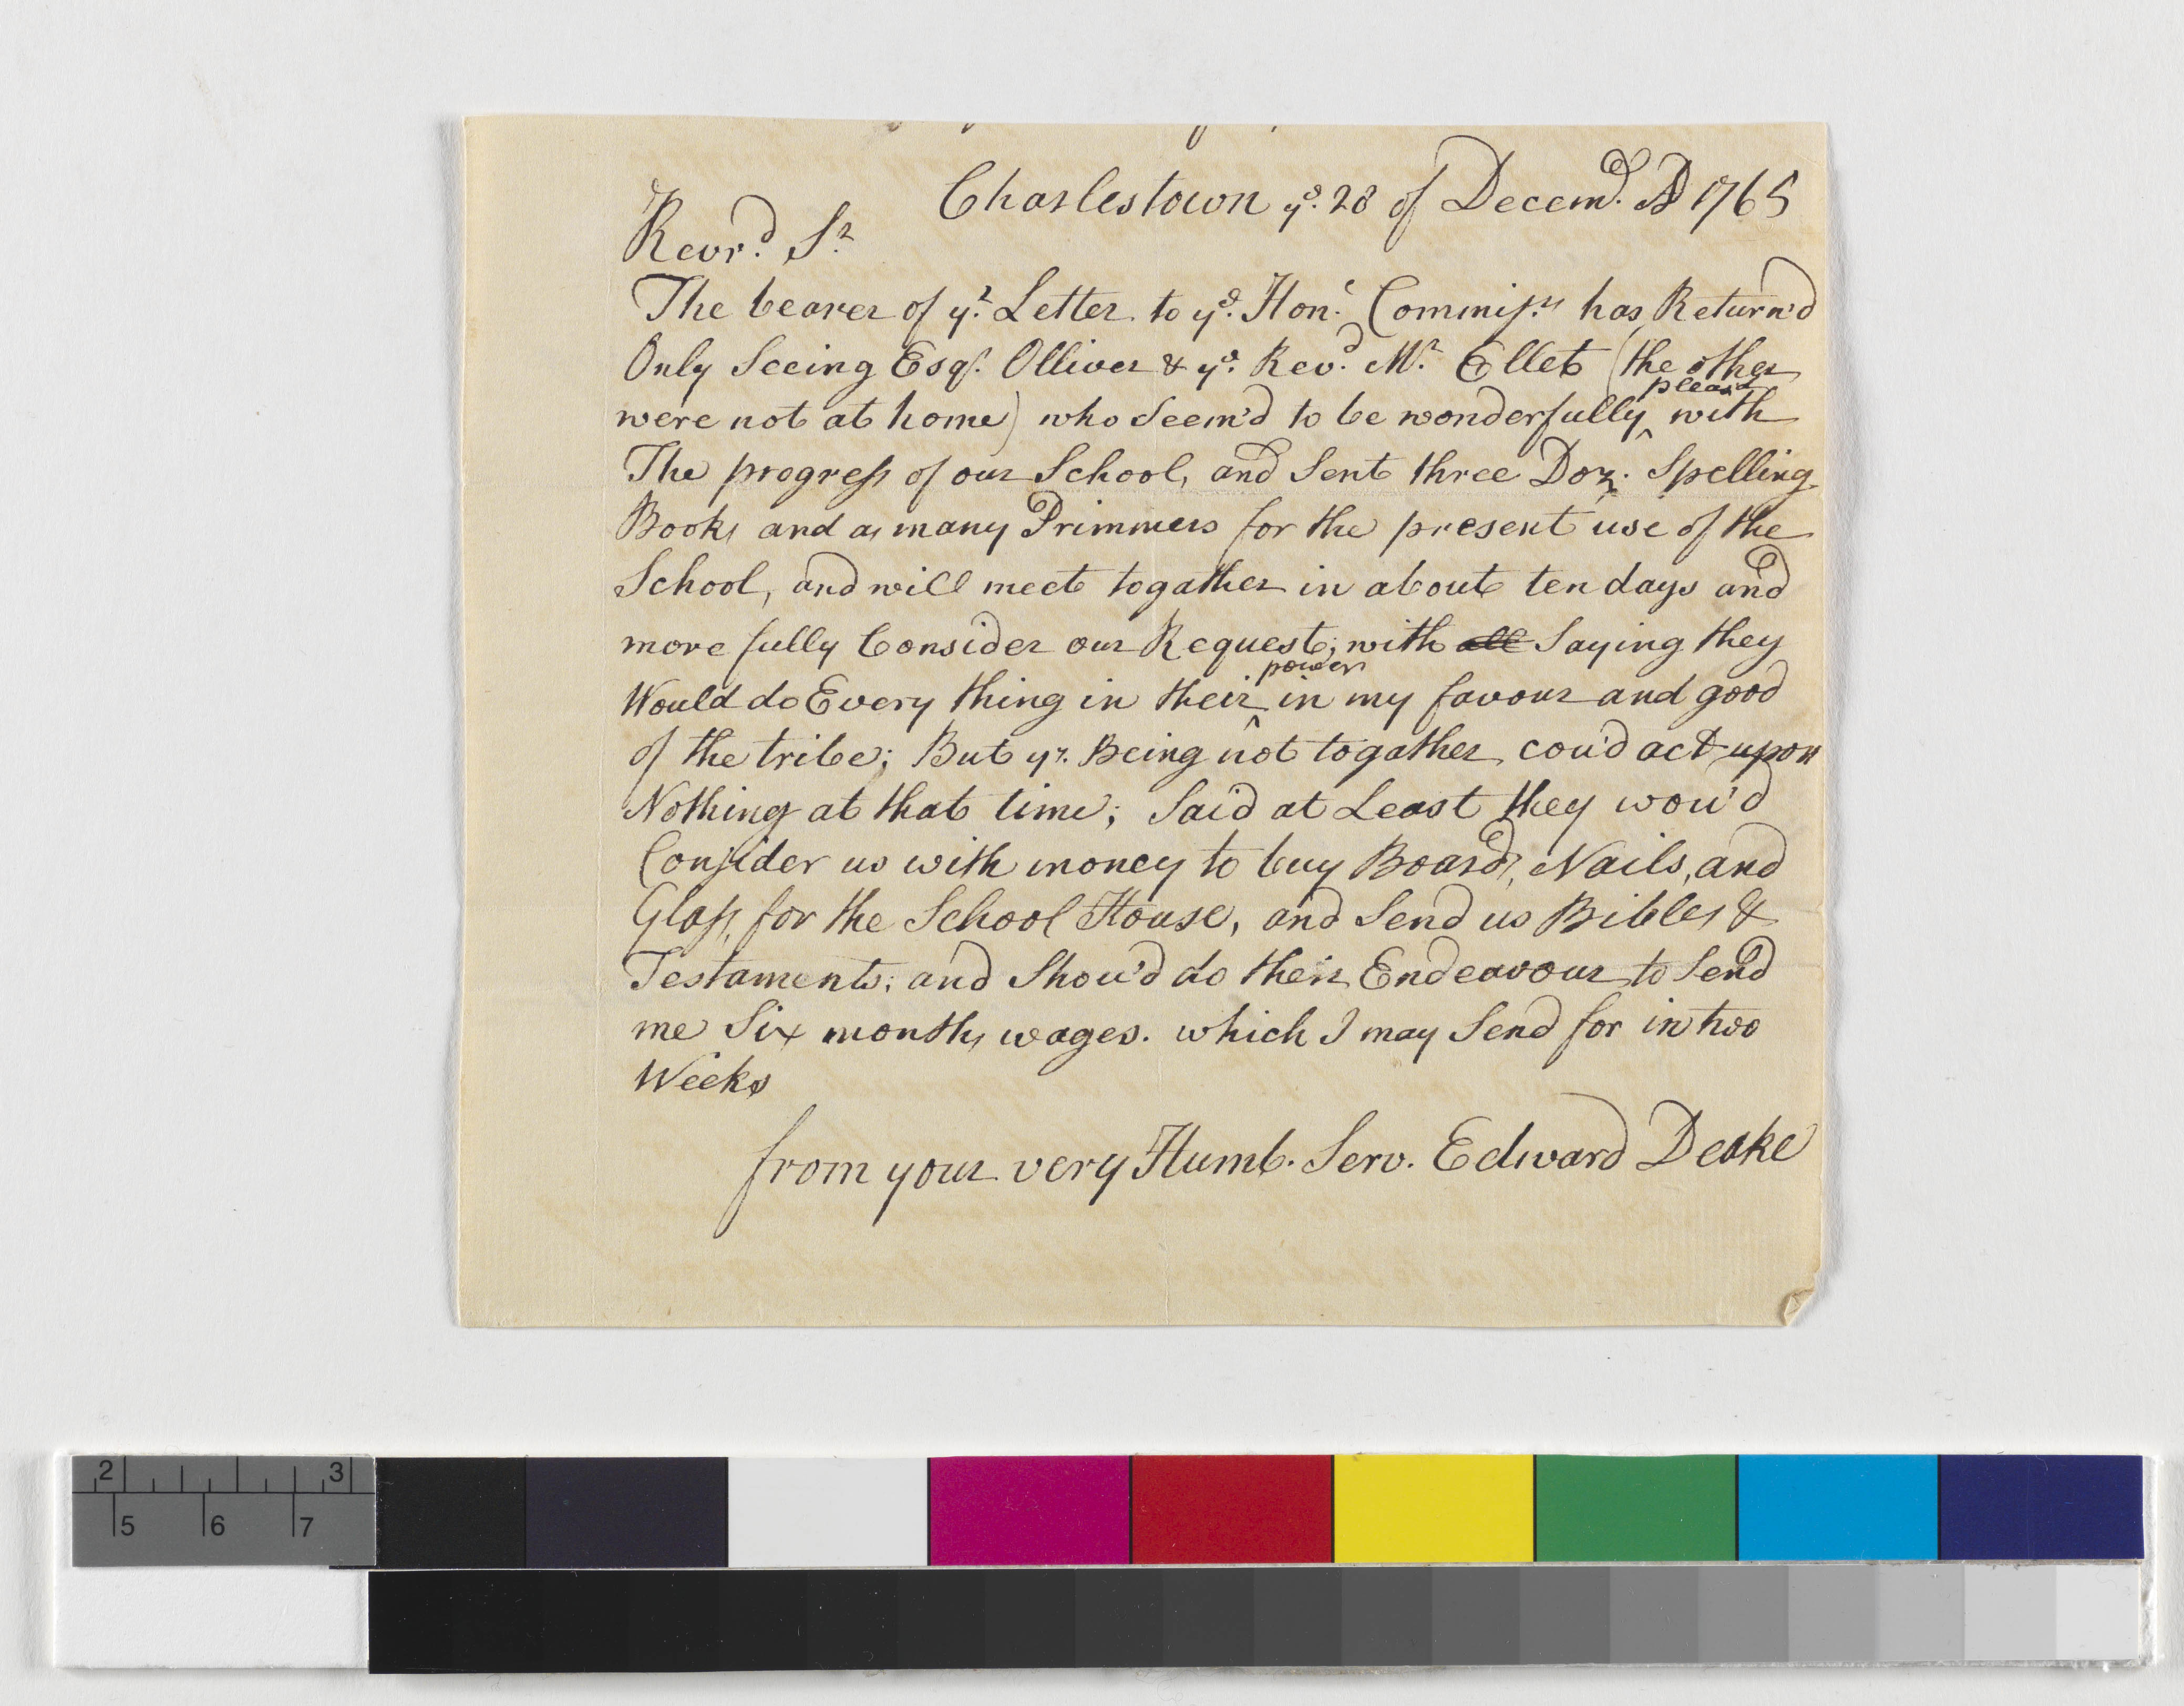 Charlestown yᵉ. 28 of Decemᵈ. AD 1765
Revrᵈ. Sʳ.
The bearer of yʳ. Letter to yᵉ. Honˡ. Commisʳˢ has Return'd
Only Seeing Esqʳ. Olliver & yᵉ. Revᵈ. Mʳ. Ellet (the other
were not at home) who Seem'd to be wonderfully ^pleas'd with
The progress of our School, and Sent three Doz. Spelling
Books and as many Primmers for the present use of the
School, and will meet togather in about ten days and
more fully Consider our Request; with all Saying they
Would do Every thing in their ^power in my favour and good
of the tribe; But yʳ. Being not togather cou'd act upon
Nothing at that time; Said at Least they wou'd
Consider us with money to buy Boards, Nails, and
Glass, for the School House, and Send us Bibles &
Testaments; and Shou'd do their Endeavour to Send
me Six months wages. which I may Send for in two
Weeks
from your very Humb. Serv. Edward Deake
2 3
5 6 7